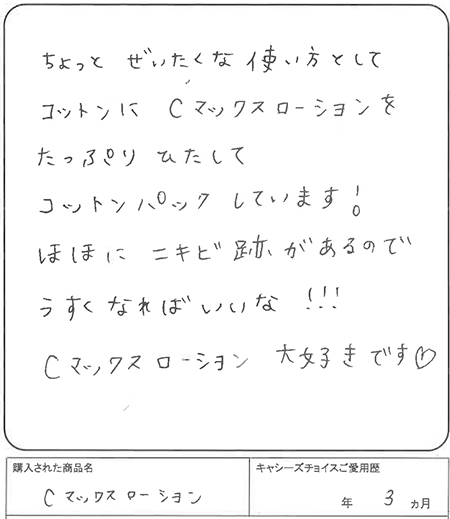 ちょっと ぜいたくな 使い方として
コットンに Cマックスローションを
たっぷり ひたして
コットンパック しています!
ほほに ニキビ跡があるので
うすくなればいいな !!!
Cマックスローション 大好きです♡
購入された商品名
キャシーズチョイスご愛用歴
Cマックスローション
年 3 カ月